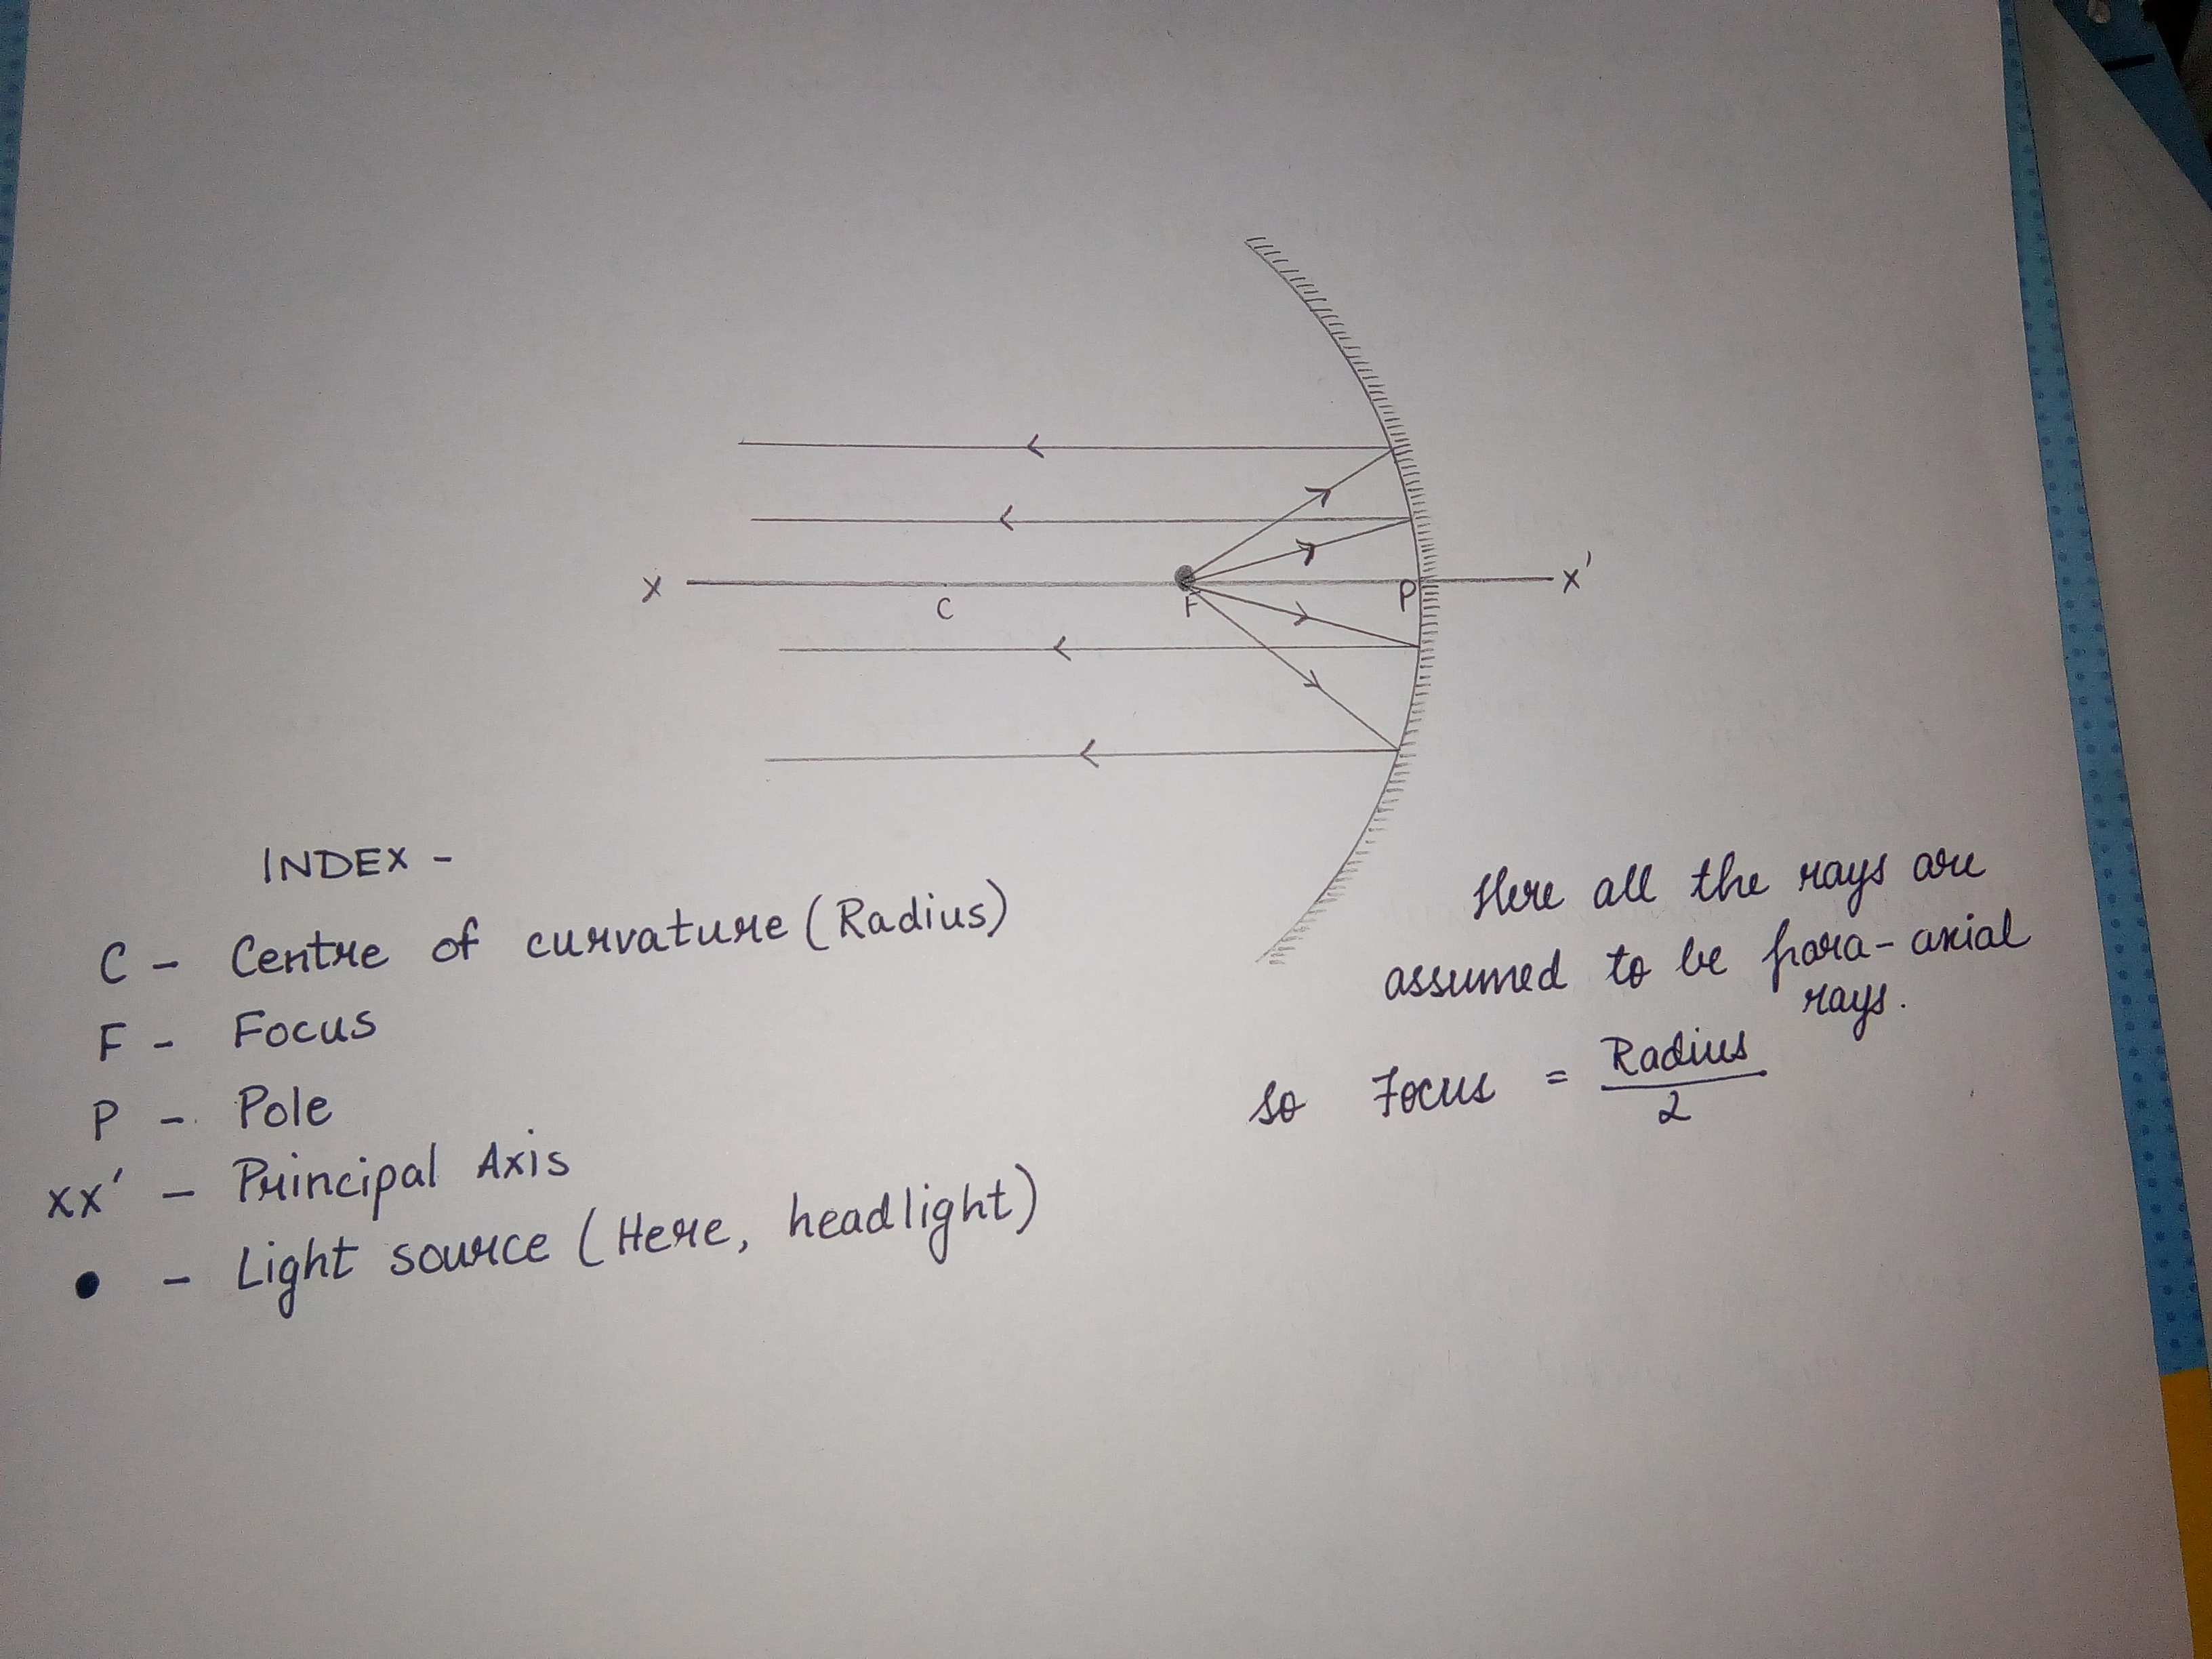 X C F P X'
INDEX -
C - Centre of curvature (Radius)
F - Focus
P - Pole
XX' - Principal Axis
• - Light source (Here, headlight)
Here all the rays are
assumed to be para-axial
rays.
So Focus = Radius
2